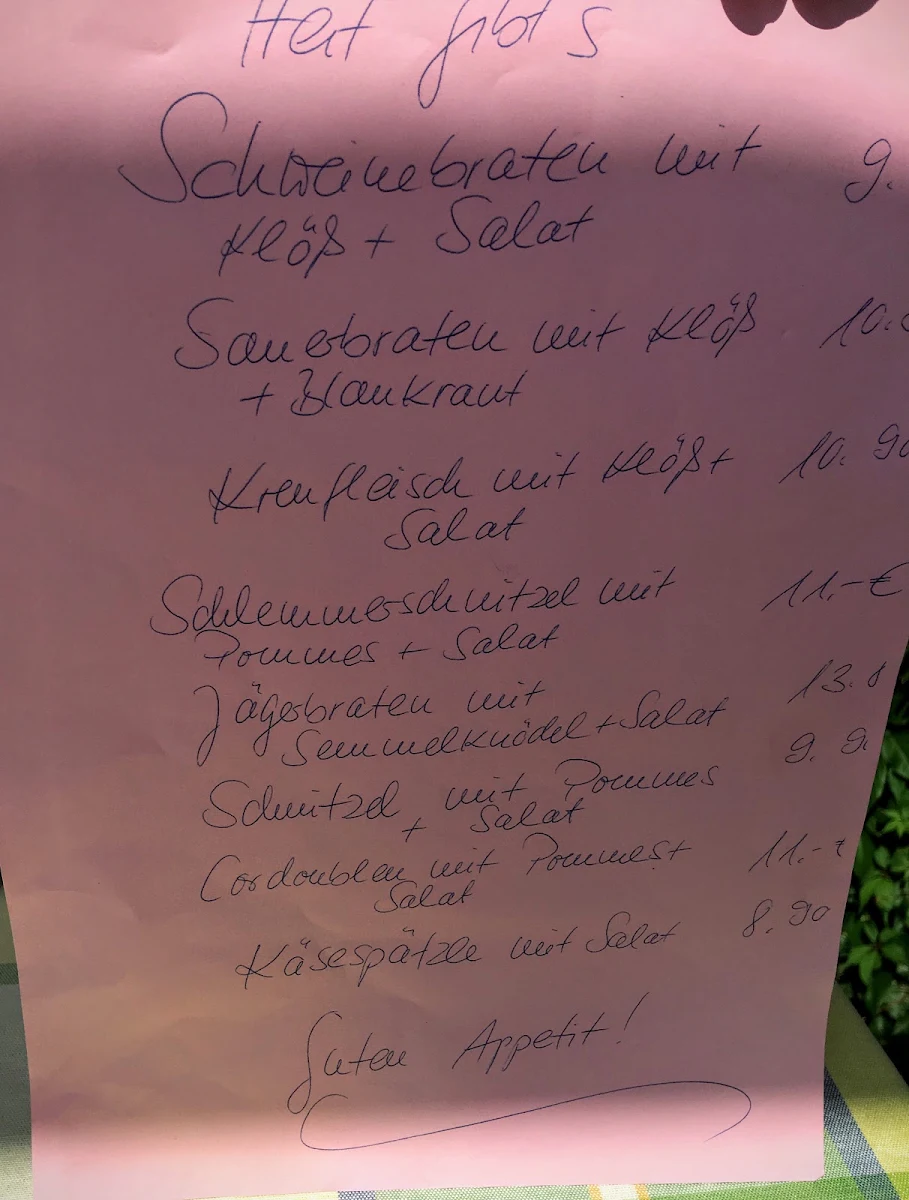 Heut gibt's
Schweinebraten mit 9.
Klöß + Salat
Sauerbraten mit Klöß 10.
+ Blaukraut
Krenfleisch mit Klöß + 10. 90
Salat
Schlemmerschnitzel mit 11.-€
Pommes + Salat
Jägerbraten mit 13.
Semmelknödel + Salat
Schnitzel mit Pommes 9. 9
+ Salat
Cordonblen mit Pommes + 11.-€
Salat
Käsespätzle mit Salat 8. 90
Guten Appetit!